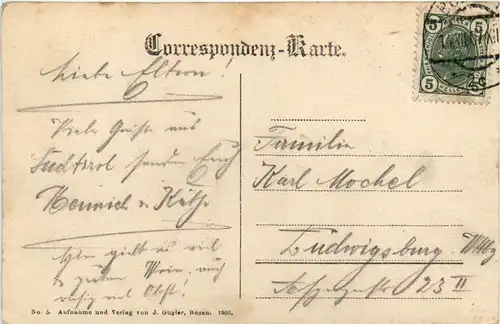 Correspondenz-Karte.
5 5
5 HELLER 5
Liebe Eltern!
Viele Grüße aus
Südtirol senden Euch
Heinrich u. Käthe
Hier gibt es viel
guten Wein, auch
viel Obst!
Familie
Karl Mockel
Ludwigsburg Wttbg
23 II
No. 5. Aufnahme und Verlag von J. Gugler, Bozen. 1906.